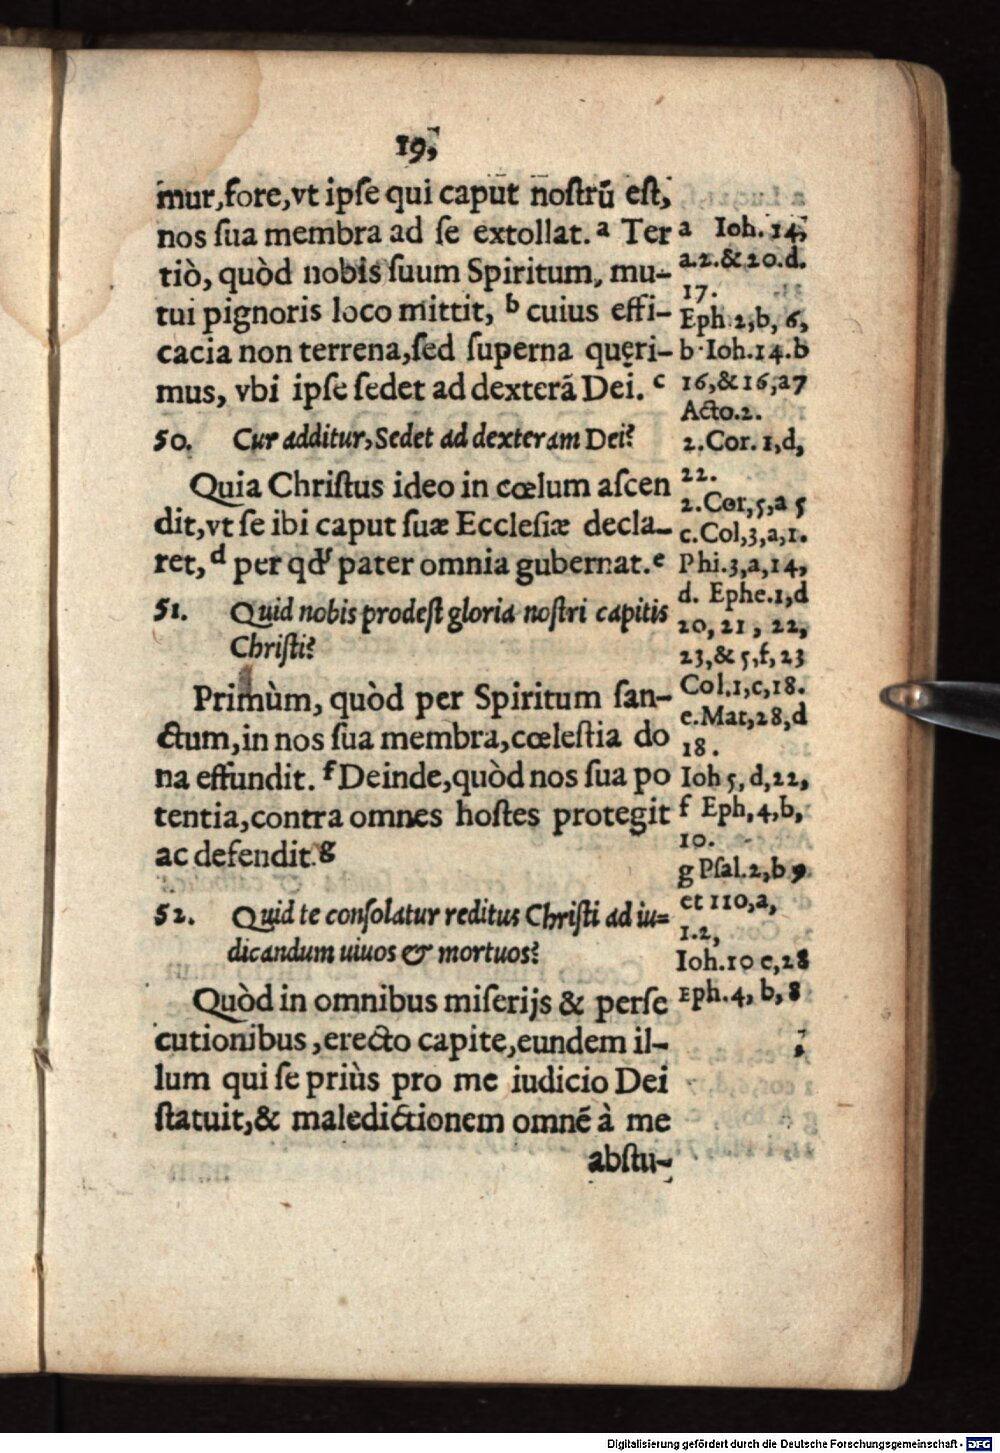 19,
mur,fore,vt ipse qui caput nostrũ est,
nos sua membra ad se extollat. a Ter
tiò, quòd nobis suum Spiritum, mu-
tui pignoris loco mittit, b cuius effi-
cacia non terrena,sed superna quęri-
mus, vbi ipse sedet ad dexterã Dei. c
50. Cur additur, Sedet ad dexteram Dei?
Quia Christus ideo in cœlum ascen
dit,vt se ibi caput suæ Ecclesiæ decla-
ret, d per qd' pater omnia gubernat. e
51. Quid nobis prodest gloria nostri capitis
Christi?
Primùm, quòd per Spiritum san-
ctum,in nos sua membra,cœlestia do
na effundit. f Deinde,quòd nos sua po
tentia,contra omnes hostes protegit
ac defendit. g
52. Quid te consolatur reditus Christi ad iu=
dicandum uiuos & mortuos?
Quòd in omnibus miserijs & perse
cutionibus,erecto capite,eundem il-
lum qui se priùs pro me iudicio Dei
statuit,& maledictionem omnẽ à me
abstu-
a Ioh. 14,
a.2.& 20.d.
17.
Eph 2,b, 6,
b Ioh.14.b
16,& 16,a7
Acto.2.
2.Cor. 1,d,
22.
2.Cor,5,a 5
c.Col,3,a,1.
Phi.3,a,14,
d. Ephe.1,d
20, 21, 22,
23,& 5,f, 23
Col.1,c,18.
e.Mat,28,d
18.
Ioh 5, d,22,
f Eph,4,b,
10.
g Psal.2,b 9
et 110,a,
1.2,
Ioh.10 e,28
Eph.4, b, 8
Digitalisierung gefördert durch die Deutsche Forschungsgemeinschaft - DFG